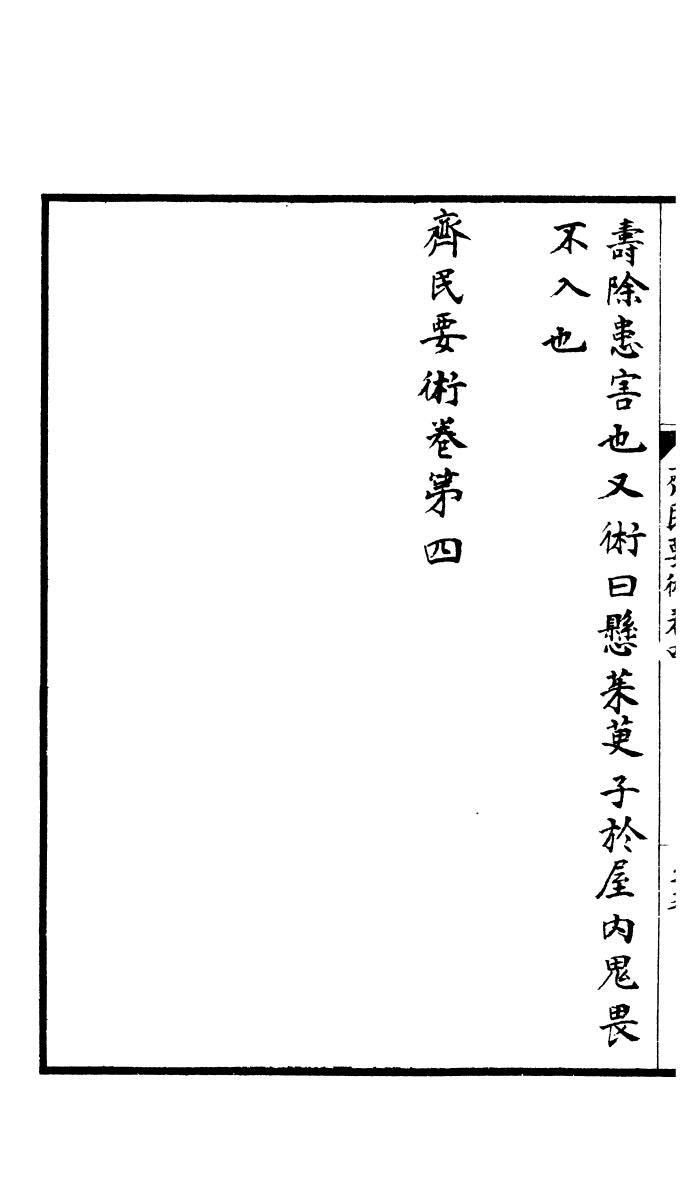 壽除患害也又術曰懸茱萸子於屋内鬼畏
不入也
齊民要術卷第四